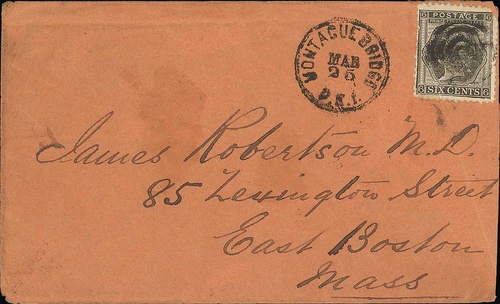 MONTAGUE BRIDGE
MAR
26
P.E.I.
POSTAGE
6 6
6 SIX CENTS 6
James Robertson M.D.
85 Lexington Street
East Boston
Mass